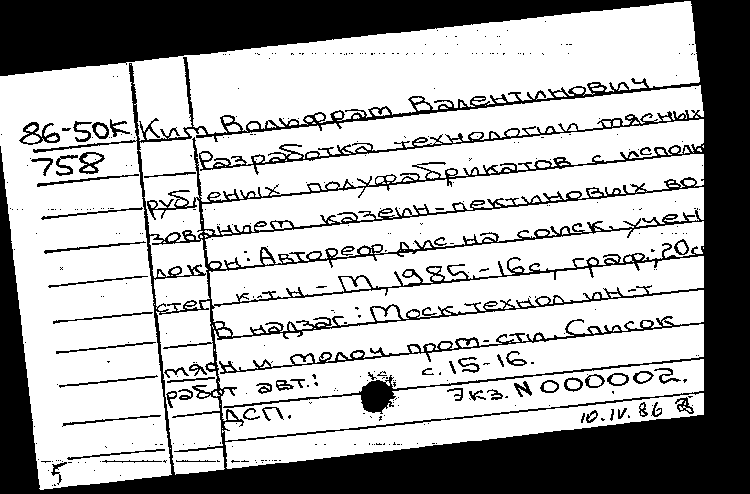 86-50К Ким, Вольфрам Валентинович.
758 Разработка технологии мясных
рубленых полуфабрикатов с исполь
зованием казеин-пектиновых во-
локон: Автореф. дис. на соиск. учен
степ. к.т.н. - М., 1985. - 16 с., граф.; 20 см
В надзаг.: Моск. технол. ин-т
мясн. и молоч. пром-сти. Список
работ авт.: с. 15-16.
ДСП. Экз. N 000002.
10.IV.86
5